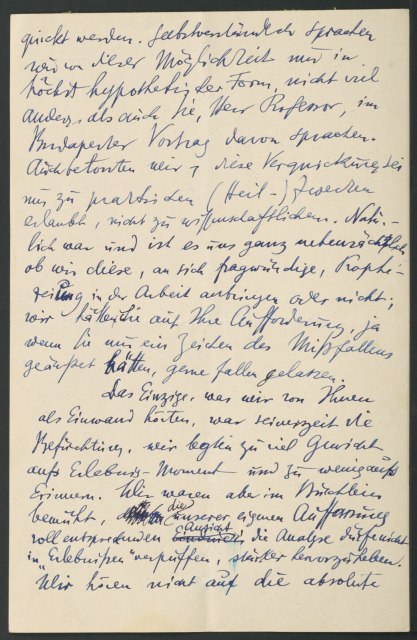 quickt werden. Selbstverständlich sprachen
wir von dieser Möglichkeit nur in
höchst hypothetischer Form, nicht viel
anders als auch Sie, Herr Professor, im
Budapester Vortrag davon sprachen.
Auch betonten wir, diese Verquickung sei
nur zu praktischen (Heil-) Zwecken
erlaubt, nicht zu wissenschaftlichen. Natür-
lich war und ist es uns ganz nebensächlich
ob wir diese, an sich fragwürdige, Prophe-
zeiung in der Arbeit anbringen oder nicht;
wir hätten sie auf Ihre Aufforderung, ja
wenn Sie nur ein Zeichen des Missfallens
geäußert hätten, gerne fallen gelassen.
Das Einzige, was wir von Ihnen
als Einwand hörten, war seinerzeit die
Befürchtung, wir legten zu viel Gewicht
aufs Erlebnis-Moment und zu wenig aufs
Erinnern. Wir waren aber im Büchlein
bemüht, die unserer eigenen Auffassung
voll entsprechenden Ansicht, die Analyse dürfe nicht
in „Erlebnissen" verpuffen, stärker hervorzuheben.
Wir hören nicht auf die absolute